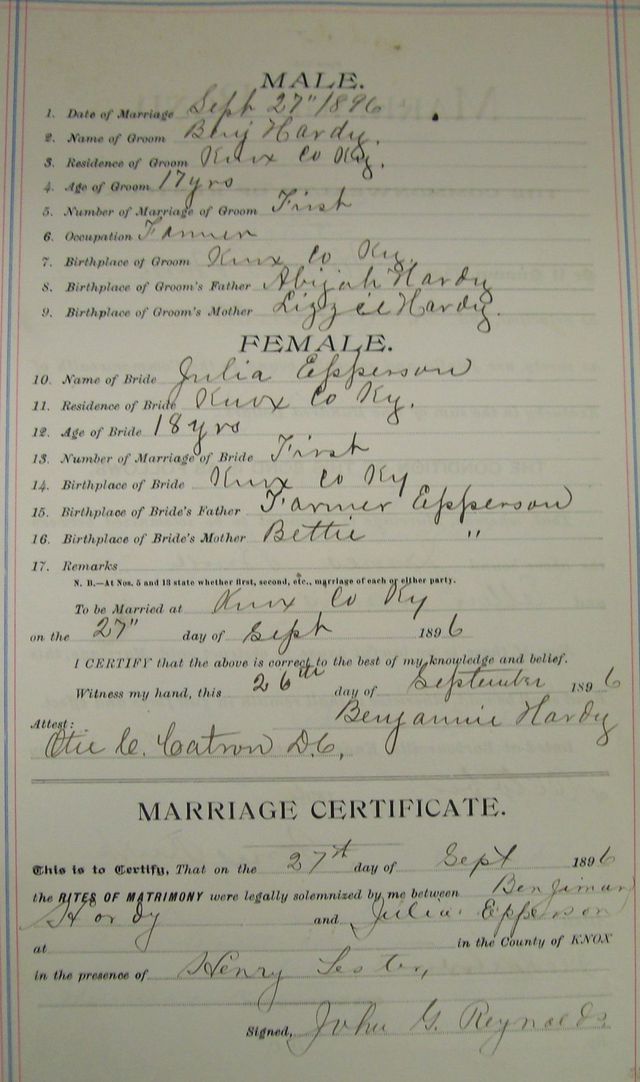 MALE.
1. Date of Marriage Sept 27" 1896
2. Name of Groom Benj Hardy.
3. Residence of Groom Knox Co Ky.
4. Age of Groom 17 yrs
5. Number of Marriage of Groom First
6. Occupation Farmer
7. Birthplace of Groom Knox Co Ky.
8. Birthplace of Groom's Father Abijah Hardy
9. Birthplace of Groom's Mother Lizzie Hardy.
FEMALE.
10. Name of Bride Julia Epperson
11. Residence of Bride Knox Co Ky.
12. Age of Bride 18 yrs
13. Number of Marriage of Bride First
14. Birthplace of Bride Knox Co Ky
15. Birthplace of Bride's Father Farmer Epperson
16. Birthplace of Bride's Mother Bettie "
17. Remarks
N. B.—At Nos. 5 and 13 state whether first, second, etc., marriage of each or either party.
To be Married at Knox Co Ky
on the 27" day of Sept 1896
I CERTIFY that the above is correct to the best of my knowledge and belief.
Witness my hand, this 26th day of September 1896
Benjamin Hardy
Attest:
C. Catron D.C.
MARRIAGE CERTIFICATE.
This is to Certify, That on the 27th day of Sept 1896
the RITES OF MATRIMONY were legally solemnized by me between Benjiman
Hardy and Julia Epperson
at in the County of KNOX
in the presence of Henry Lester,
Signed, John G. Reynolds